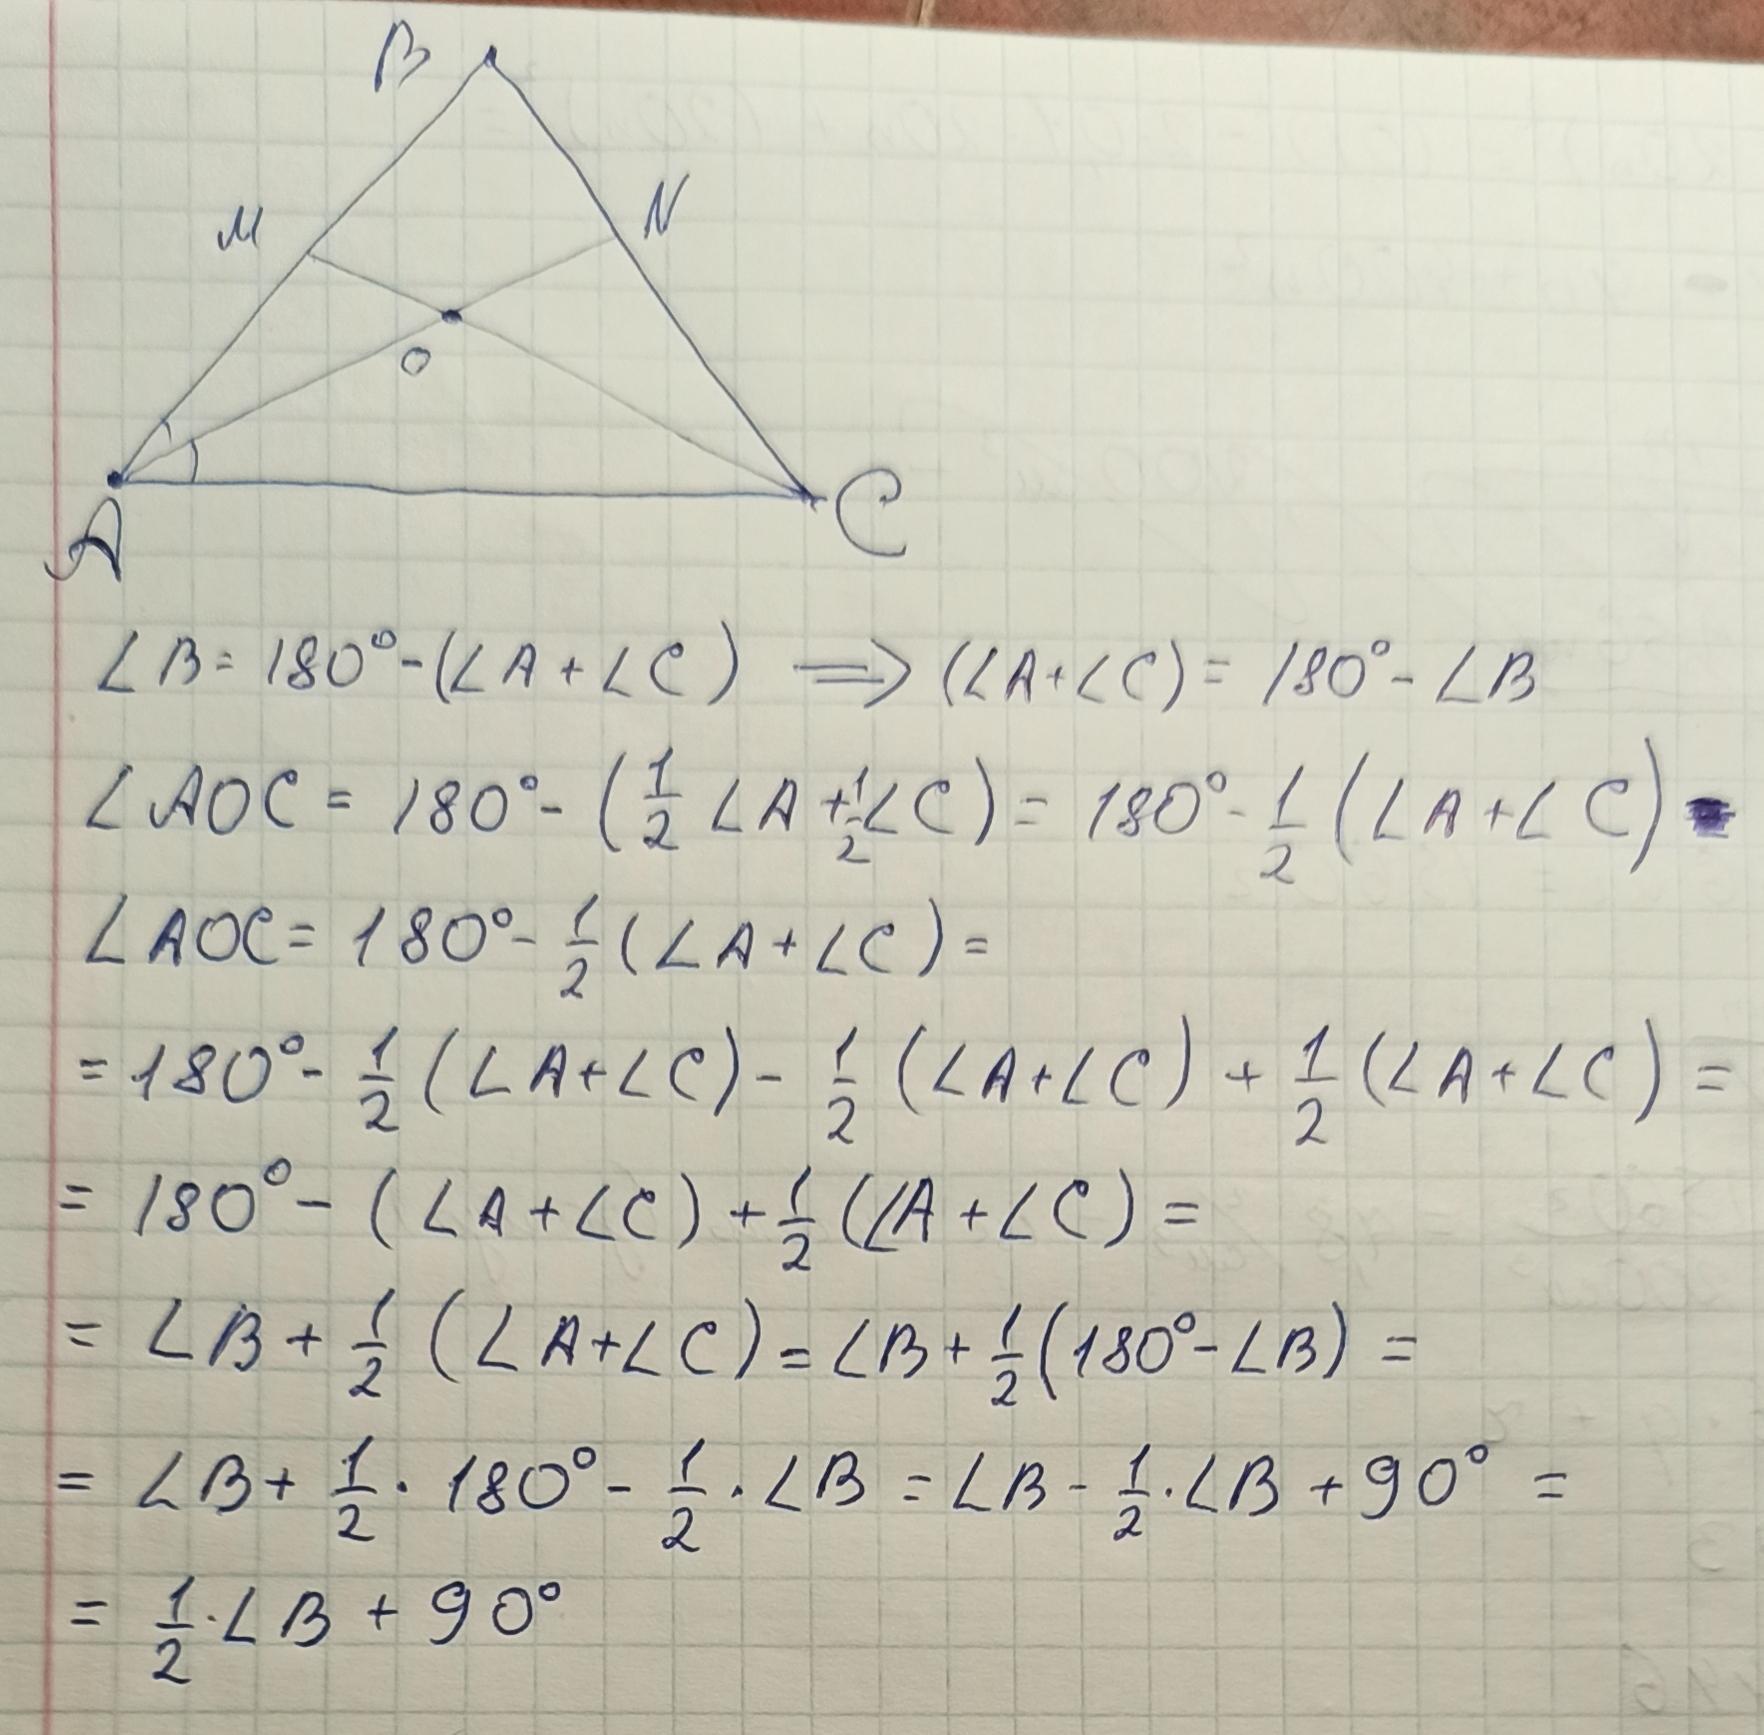 B
M N
O
A C
∠B = 180° - (∠A + ∠C) ⟹ (∠A + ∠C) = 180° - ∠B
∠AOC = 180° - (1/2 ∠A + 1/2 ∠C) = 180° - 1/2 (∠A + ∠C)
∠AOC = 180° - 1/2 (∠A + ∠C) =
= 180° - 1/2 (∠A + ∠C) - 1/2 (∠A + ∠C) + 1/2 (∠A + ∠C) =
= 180° - (∠A + ∠C) + 1/2 (∠A + ∠C) =
= ∠B + 1/2 (∠A + ∠C) = ∠B + 1/2 (180° - ∠B) =
= ∠B + 1/2 · 180° - 1/2 · ∠B = ∠B - 1/2 · ∠B + 90° =
= 1/2 · ∠B + 90°